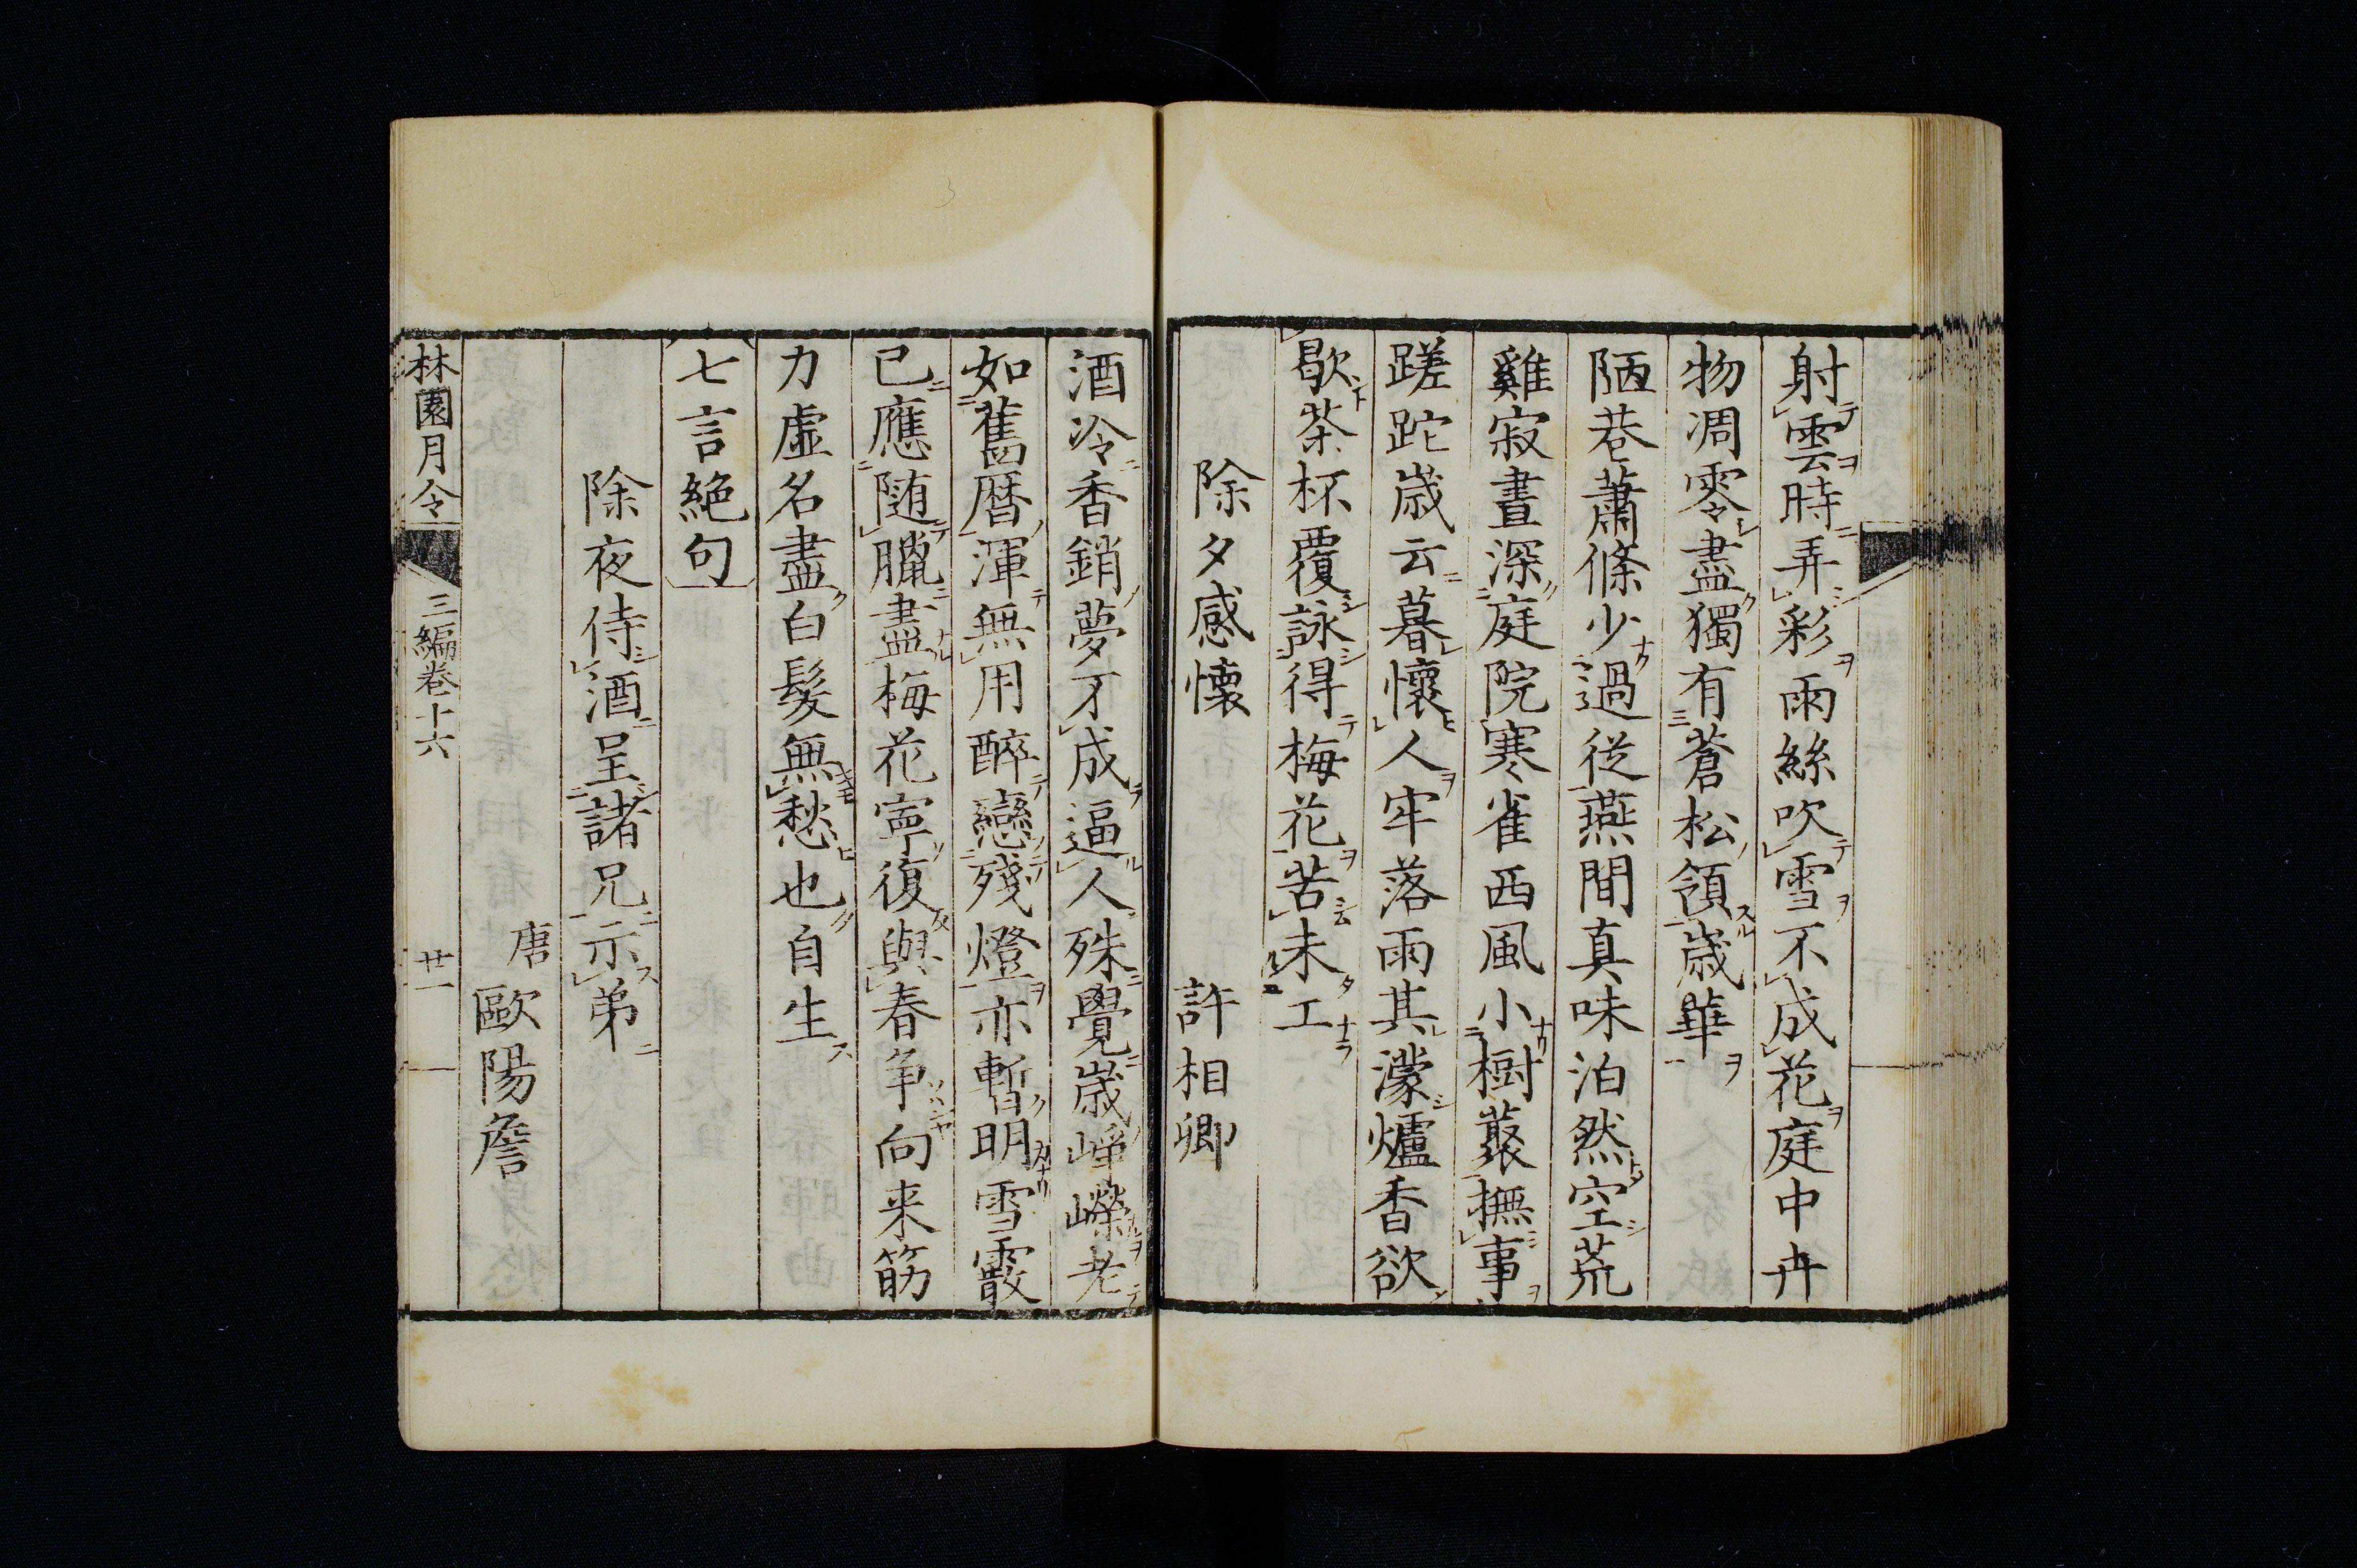 射雲時弄彩雨絲吹雪不成花庭中卉
物凋零盡獨有蒼松領歳華
陋巷蕭條少過従燕間真味泊然空荒
雞寂晝深庭院寒雀西風小樹叢撫事
蹉跎歳云暮懷人牢落雨其濛爐香欲
歇茶杯覆詠得梅花苦未工
除夕感懐 許相卿
酒冷香銷夢不成逼人殊覺歳崢嶸老
如舊暦渾無用醉戀殘燈亦暫明雪霰
已應随臘盡梅花寧復與春争向来筋
力虚名盡白髪無愁也自生
七言絶句
除夜侍酒呈諸兄示弟
唐 歐陽詹
林園月令 三編巻十六 廿一